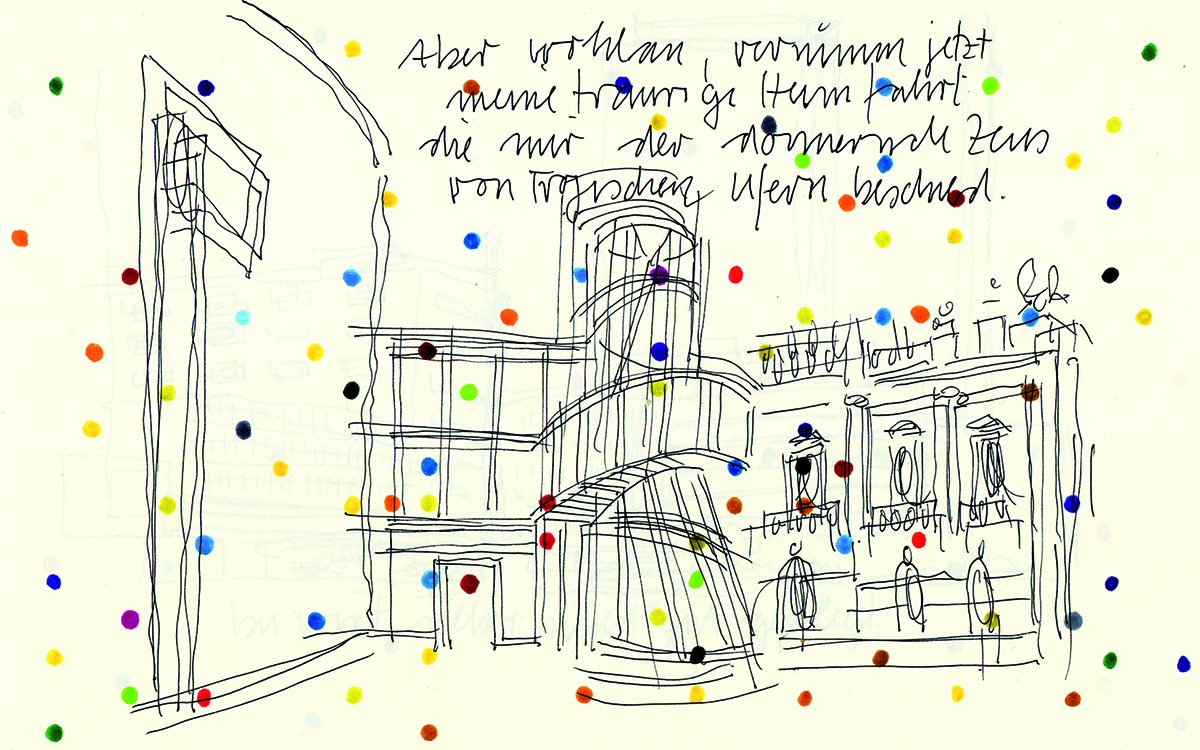 Aber wohlan, vernimm jetzt
meine traurige Heimfahrt
die mir der donnernde Zeus
von Troischen Ufern beschied.